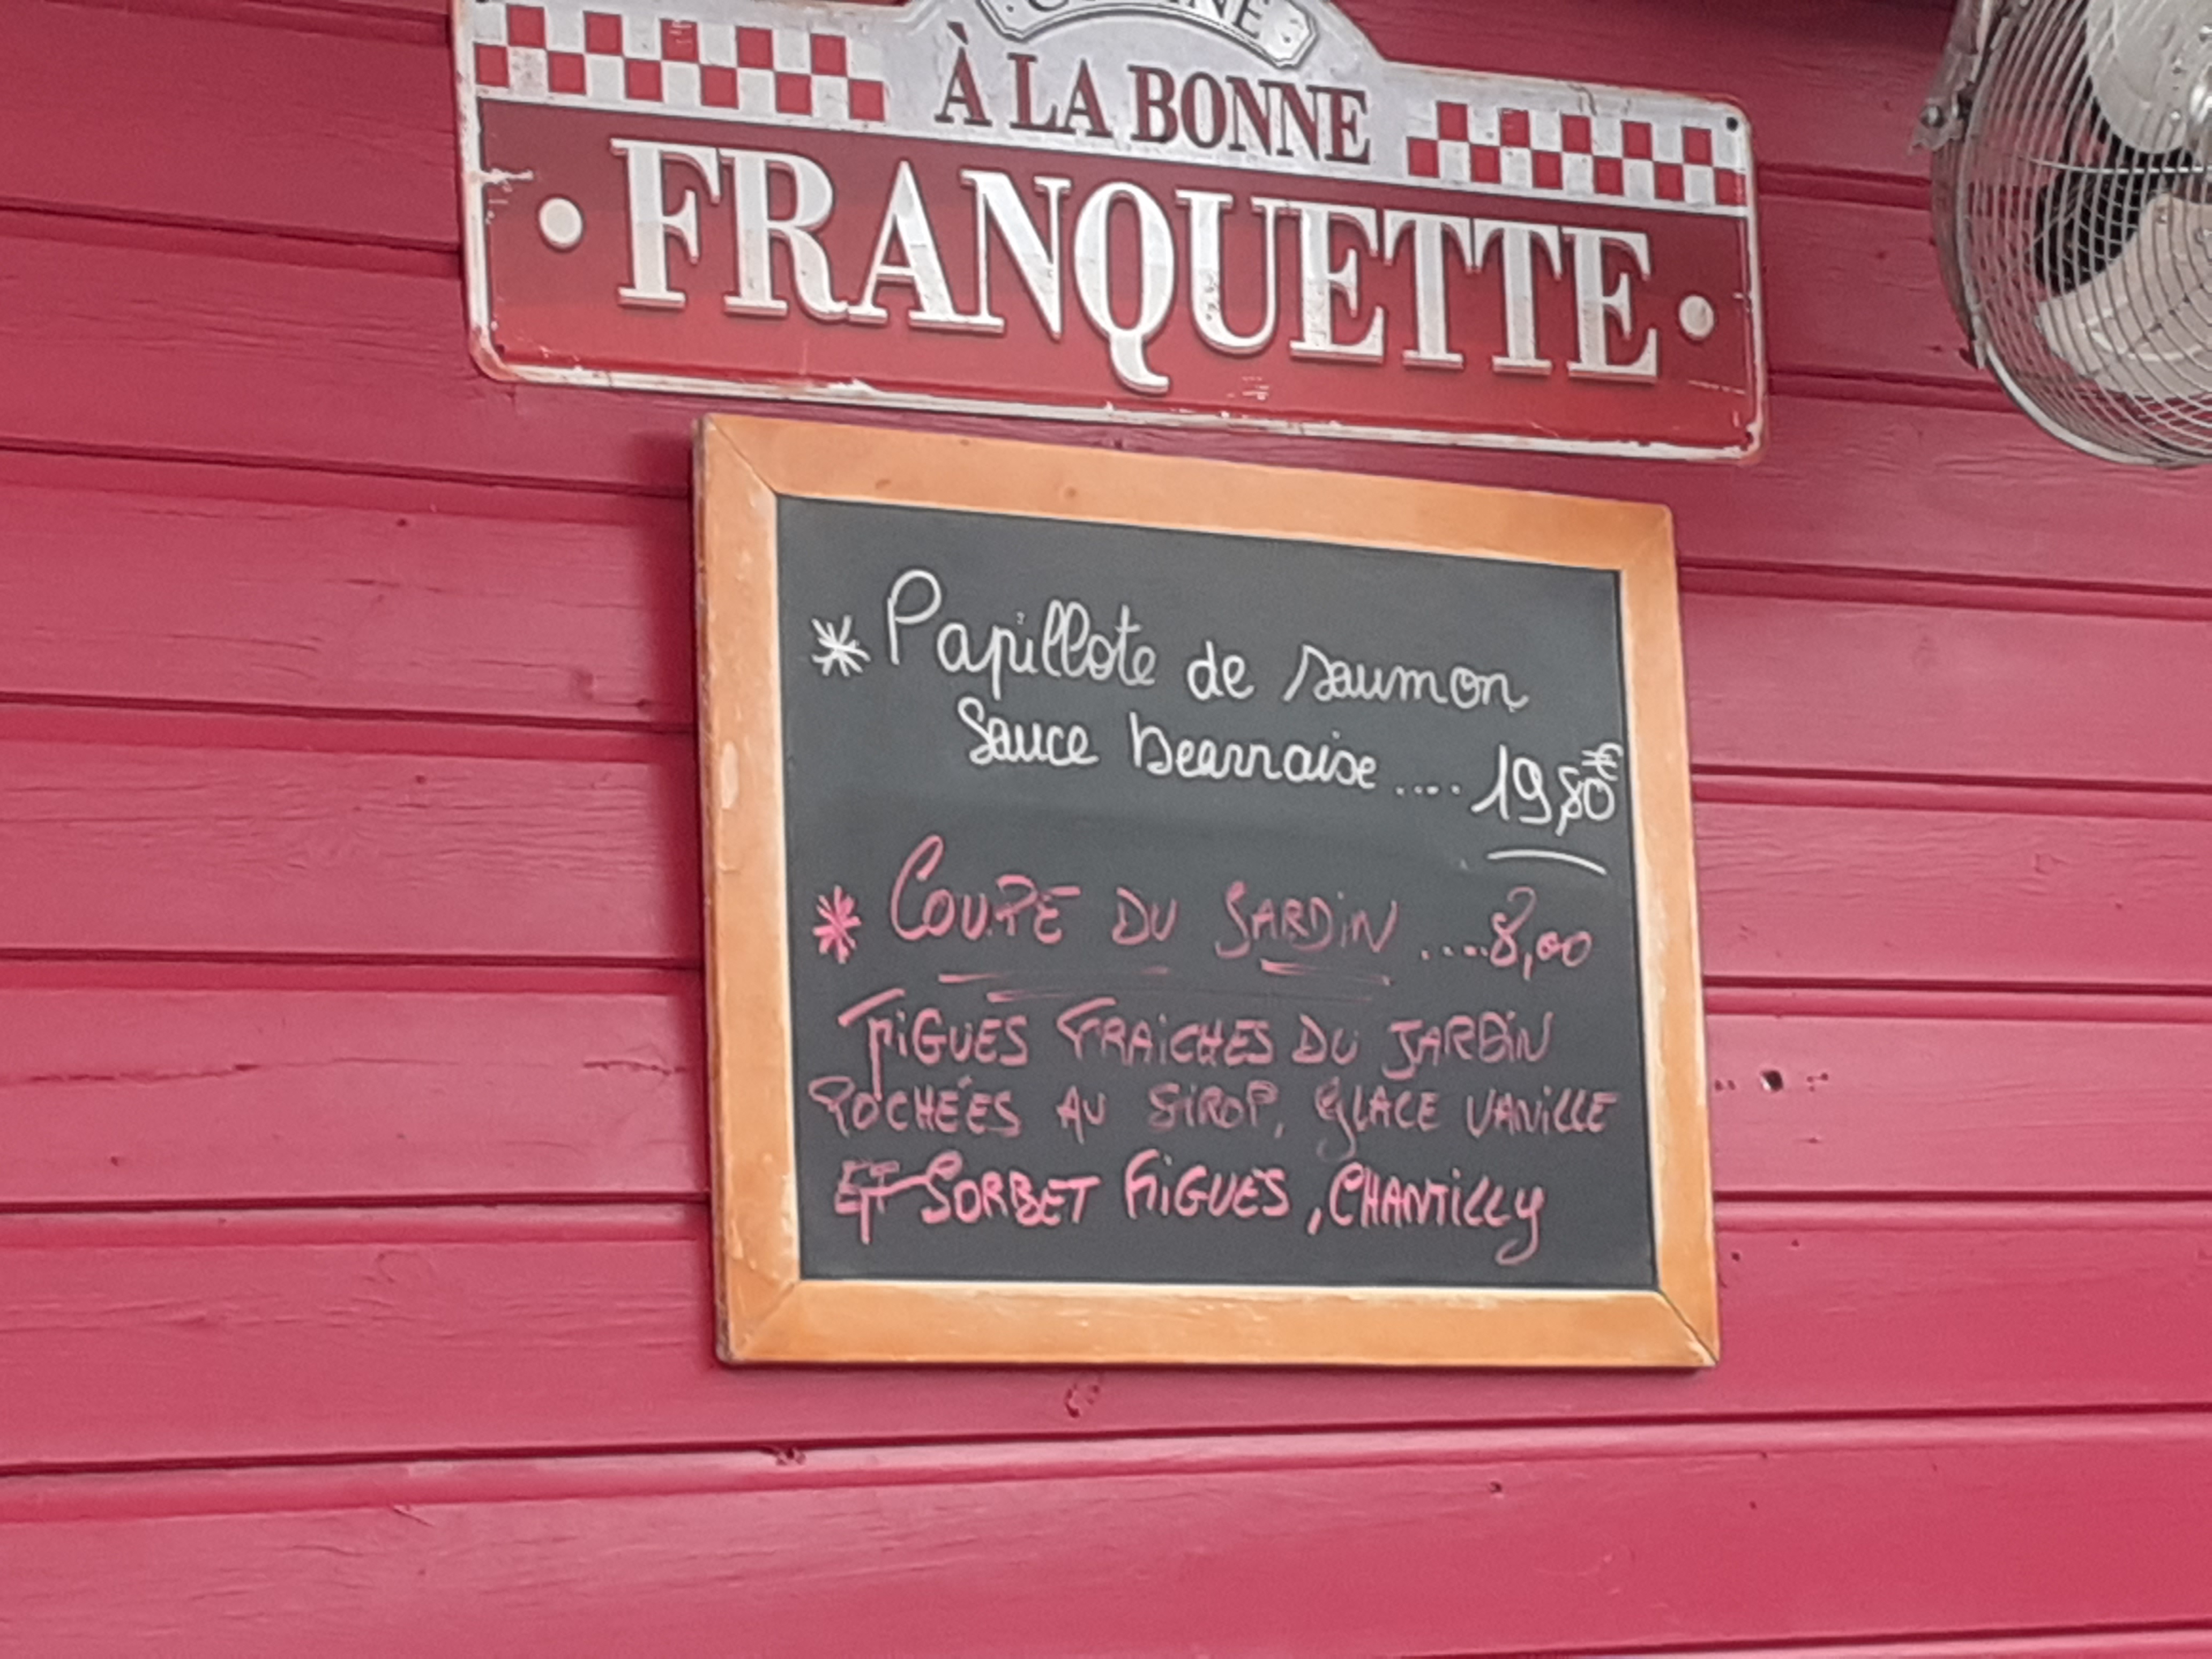 À LA BONNE
FRANQUETTE
* Papillote de saumon
Sauce bearnaise .... 19,80€
* COUPE DU JARDIN ....8,00
FIGUES FRAICHES DU JARDIN
POCHÉES AU SIROP, GLACE VANILLE
ET SORBET FIGUES, CHANTILLY